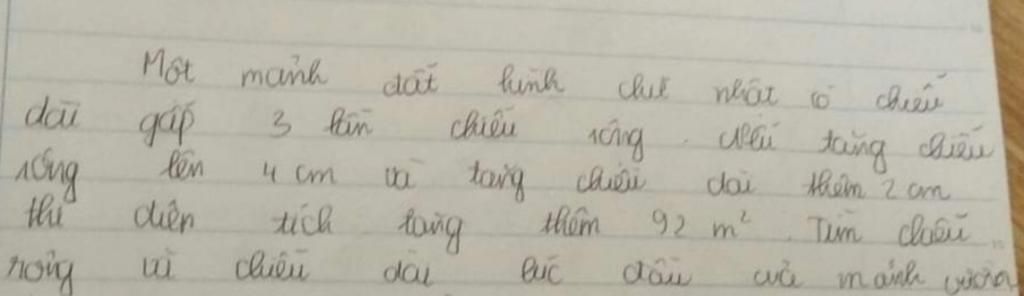 Một mảnh đất hình chữ nhật có chiều
dài gấp 3 lần chiều rộng. Nếu tăng chiều
rộng lên 4 cm và tăng chiều dài thêm 2 cm
thì diện tích tăng thêm 92 m². Tìm chiều
rộng và chiều dài lúc đầu của mảnh vườn